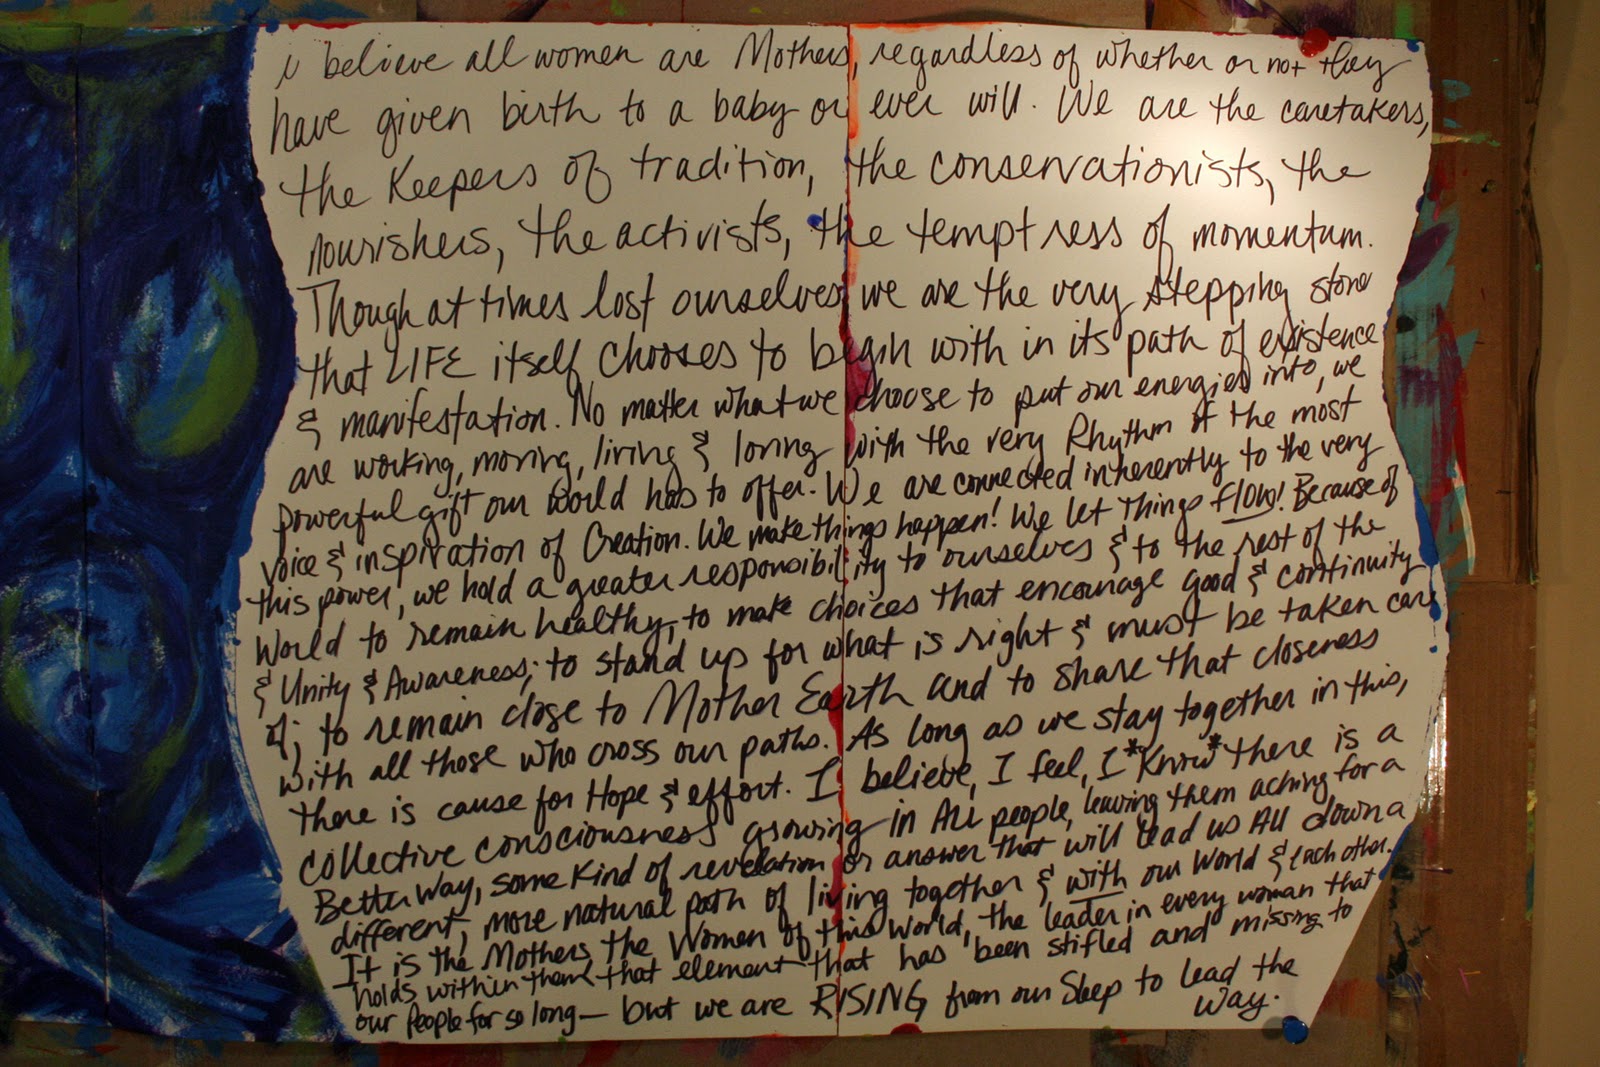 i believe all women are Mothers, regardless of whether or not they
have given birth to a baby or ever will. We are the caretakers,
the Keepers of tradition, the conservationists, the
nourishers, the activists, the temptress of momentum.
Though at times lost ourselves we are the very stepping stone
that LIFE itself chooses to begin with in its path of existence
& manifestation. No matter what we choose to put our energies into, we
are working, moving, living & loving with the very Rhythm of the most
powerful gift our world has to offer. We are connected inherently to the very
voice & inspiration of Creation. We make things happen! We let things flow! Because of
this power, we hold a greater responsibility to ourselves & to the rest of the
World to remain healthy; to make choices that encourage good & continuity
& Unity & Awareness; to stand up for what is right & must be taken care
of; to remain close to Mother Earth and to share that closeness
with all those who cross our paths. As long as we stay together in this,
there is cause for Hope & effort. I believe, I feel, I *Know* there is a
collective consciousness growing in ALL people, leaving them aching for a
Better Way, some kind of revelation or answer that will lead us All down a
different, more natural path of living together & with our World & each other.
It is the Mothers, the Women of this World, the leader in every woman that
holds within them that element that has been stifled and missing to
our people for so long— but we are RISING from our Sleep to lead the
Way.